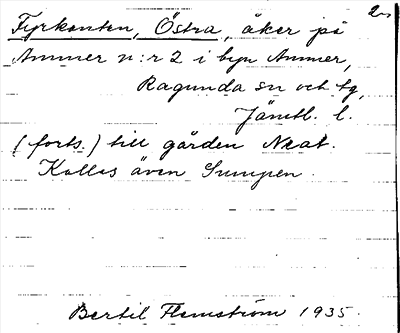 2.
Fyrkanten, Östra, åker på
Ammer n:r 2 i byn Ammer,
Ragunda sn och tg,
Jämtl. l.
(forts.) till gården Neat.
Kallas även Sumpen.
Bertil Flemström 1935.